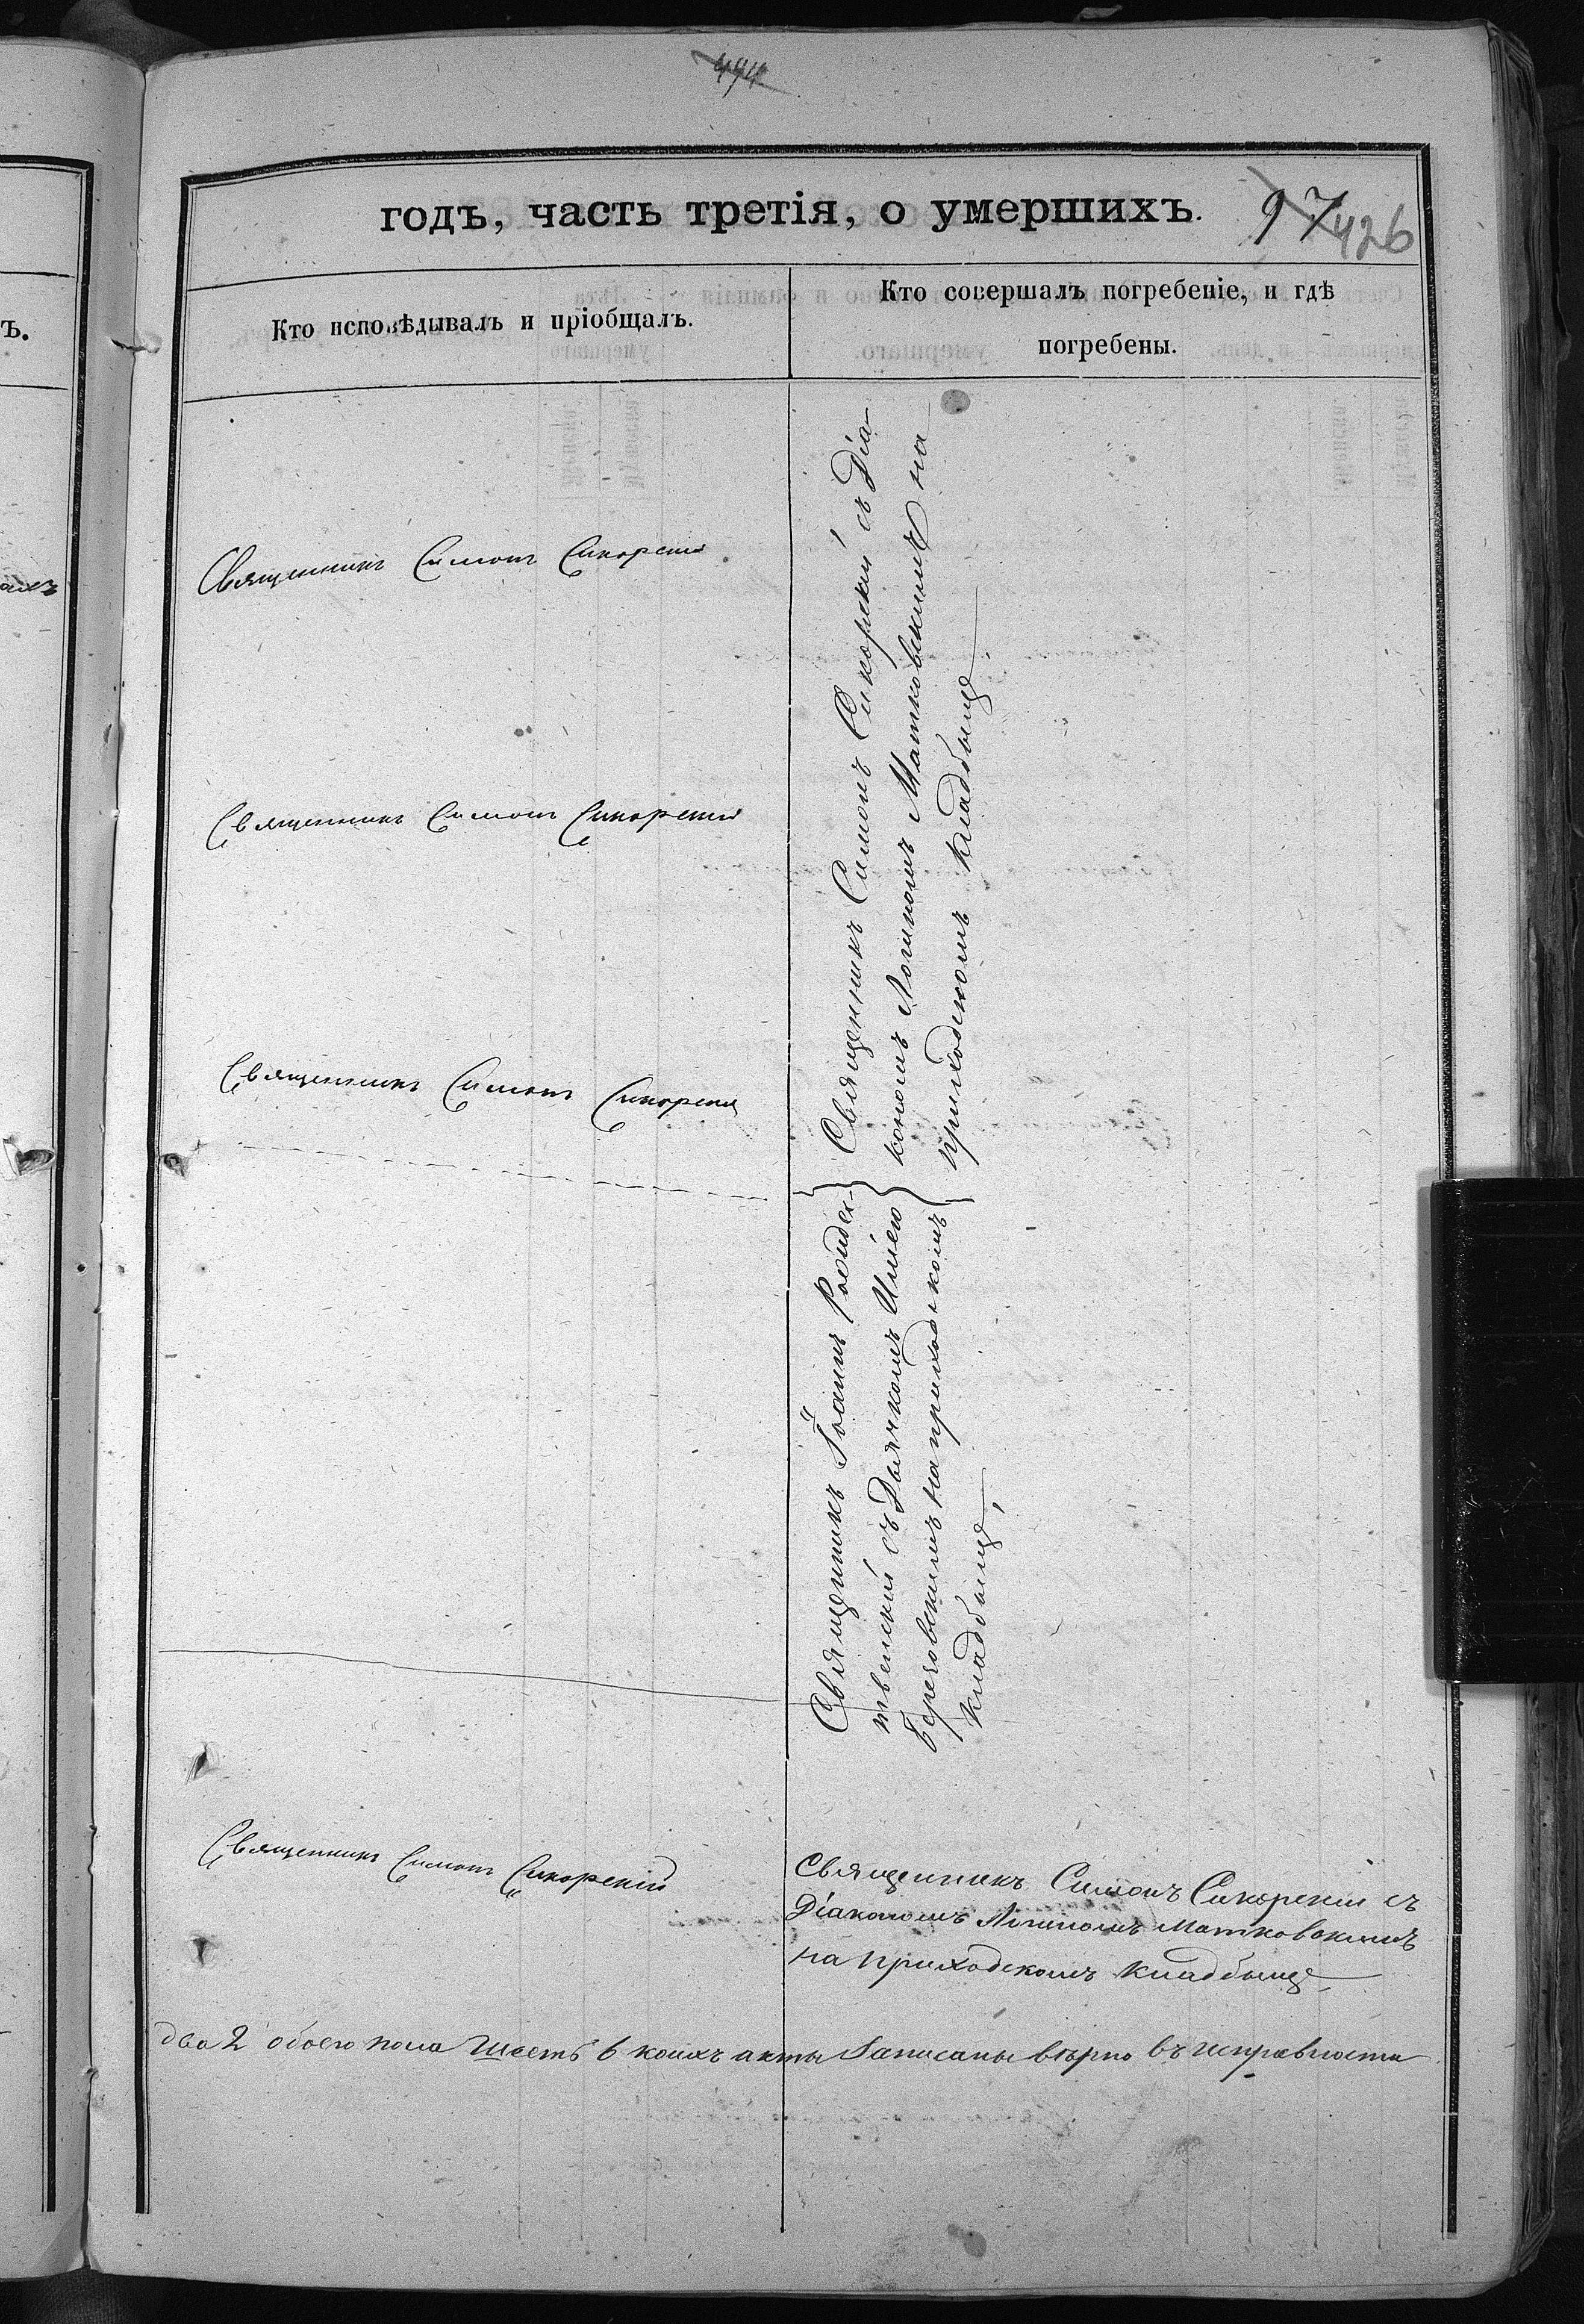 494
годъ, часть третія, о умершихъ.
97
426
Кто исповѣдывалъ и пріобщалъ.
Кто совершалъ погребеніе, и гдѣ
погребены.
Священникъ Симонъ Сикорскій
Священникъ Симонъ Сикорскій
Священникъ Симонъ Сикорскій
Священникъ Симонъ Сикорскій съ Діа-
кономъ Логиномъ Матковскимъ на
приходскомъ кладбищѣ
Священникъ Іоаннъ Рождес-
твенскій съ Дьячкомъ Иліею
на приходскомъ
кладбищѣ,
Священникъ Симонъ Сикорскій
Священникъ Симонъ Сикорскій съ
Діакономъ Логиномъ Матковскимъ
на приходскомъ кладбищѣ
два 2 обоего пола шесть 6 коихъ акты записаны вѣрно въ исправности